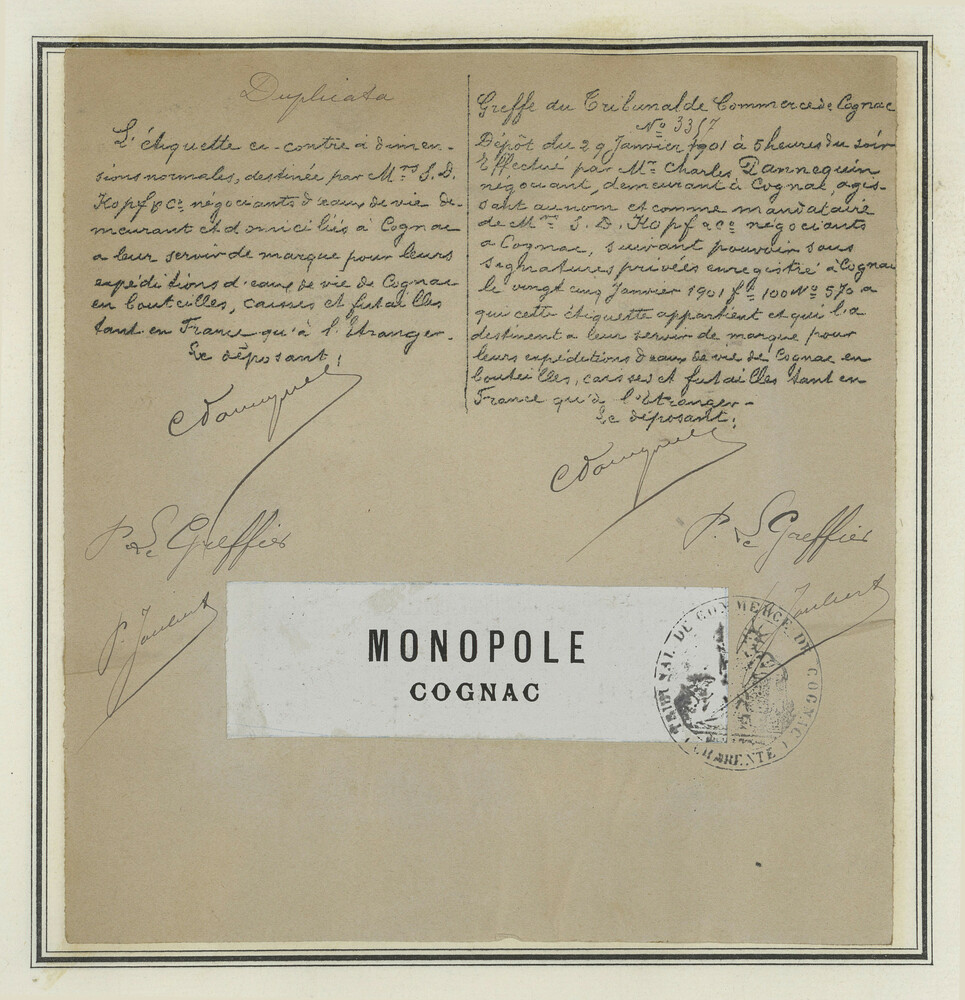 Duplicata
L'étiquette ci-contre à dimen-
sions normales, destinée par Mrs S. D.
Kopf & Ce négociants d'eaux de vie de-
meurant et domiciliés à Cognac
a leur servir de marque pour leurs
expéditions d'eaux de vie de Cognac
en bouteilles, caisses et futailles
tant en France qu'à l'Etranger.
Le déposant:
P. Le Greffier
P. Joubert
Greffe du Tribunal de Commerce de Cognac
No 3357
Dépôt du 29 Janvier 1901 à 5 heures du soir
Effectué par Mr Charles Dannequin
négociant, demeurant à Cognac, agis-
sant au nom et comme mandataire
de Mrs S. D. Kopf & Ce négociants
a Cognac, suivant pouvoir sous
signatures privées enregistré à Cognac
le vingt cinq Janvier 1901 fo 100 No 570 a
qui cette étiquette appartient et qui l'a
destinent a leur servir de marque pour
leurs expéditions d'eaux de vie de Cognac en
bouteilles, caisses et futailles tant en
France qu'à l'Etranger-
Le déposant:
P. Le Greffier
Joubert
MONOPOLE
COGNAC
TRIBUNAL DE COMMERCE DE COGNAC
(CHARENTE)